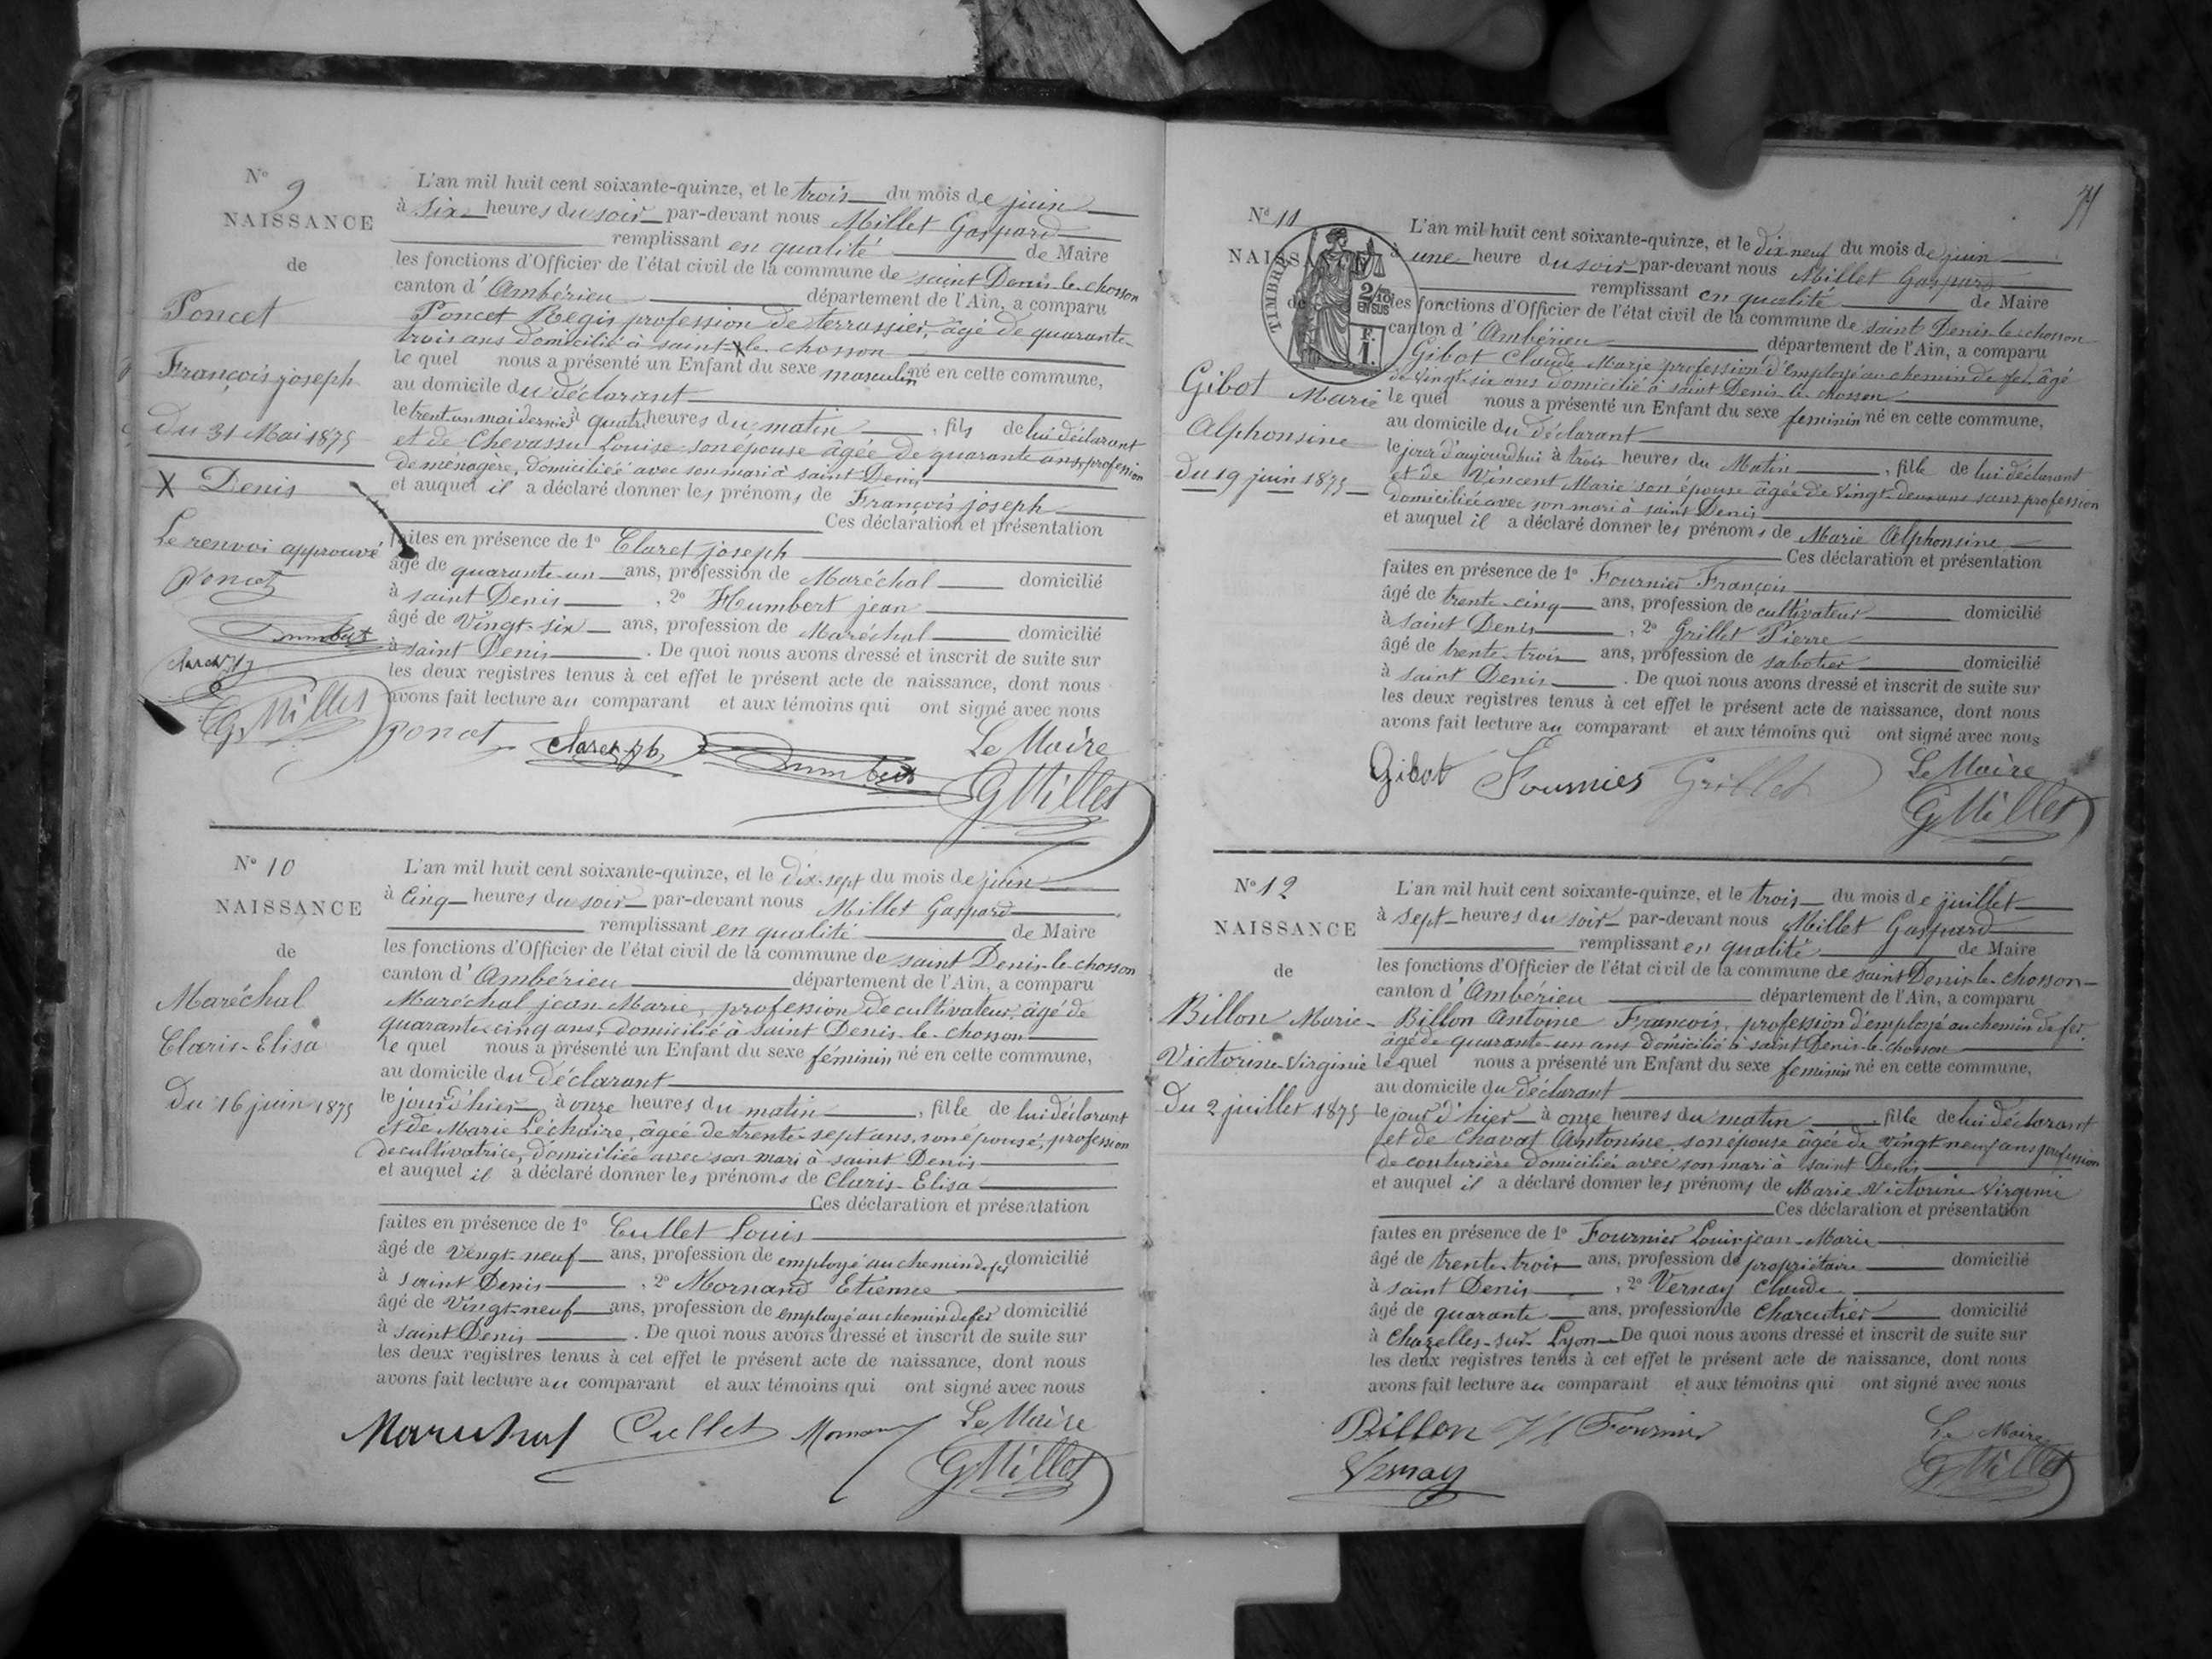 N° 9
NAISSANCE
de
Poncet
François joseph
du 31 Mai 1875
X Denis
Le renvoi approuvé
Poncet
Humbert
Claret
G Millet
L'an mil huit cent soixante-quinze, et le trois du mois de juin
à six heures du soir par-devant nous Millet Gaspard
remplissant en qualité de Maire
les fonctions d'Officier de l'état civil de la commune de saint Denis-le-chosson
canton d'Ambérieu département de l'Ain, a comparu
Poncet Regis profession de terrassier, âgé de quarante-
trois ans domicilié à saint-X le chosson
le quel nous a présenté un Enfant du sexe masculin né en cette commune,
au domicile du déclarant
le trent un mai dernier à quatre heures du matin, fils de lui déclarant
et de Chevassu Louise son épouse âgée de quarante ans, profession
de ménagère, domiciliée avec son mari à saint Denis
et auquel il a déclaré donner les prénoms de François joseph
Ces déclaration et présentation
faites en présence de 1° Claret joseph
âgé de quarante-un ans, profession de Maréchal domicilié
à saint Denis, 2° Humbert jean
âgé de Vingt-six ans, profession de Maréchal domicilié
à saint Denis. De quoi nous avons dressé et inscrit de suite sur
les deux registres tenus à cet effet le présent acte de naissance, dont nous
avons fait lecture au comparant et aux témoins qui ont signé avec nous
Poncet Claret Humbert Le Maire
G Millet
N° 10
NAISSANCE
de
Maréchal
Claris-Elisa
du 16 juin 1875
L'an mil huit cent soixante-quinze, et le dix-sept du mois de juin
à Cinq heures du soir par-devant nous Millet Gaspard
remplissant en qualité de Maire
les fonctions d'Officier de l'état civil de la commune de saint Denis-le-chosson
canton d'Ambérieu département de l'Ain, a comparu
Maréchal jean-Marie, profession de cultivateur, âgé de
quarante-cinq ans, domicilié à saint Denis-le-chosson
le quel nous a présenté un Enfant du sexe féminin né en cette commune,
au domicile du déclarant
le jour d'hier à onze heures du matin, fille de lui déclarant
et de Marie Léchaire, âgée de trente-sept ans, son épouse, profession
de cultivatrice, domiciliée avec son mari à saint Denis
et auquel il a déclaré donner les prénoms de Claris-Elisa
Ces déclaration et présentation
faites en présence de 1° Cullet Louis
âgé de Vingt-neuf ans, profession de employé au chemin de fer domicilié
à saint Denis, 2° Mornand Etienne
âgé de Vingt-neuf ans, profession de employé au chemin de fer domicilié
à saint Denis. De quoi nous avons dressé et inscrit de suite sur
les deux registres tenus à cet effet le présent acte de naissance, dont nous
avons fait lecture au comparant et aux témoins qui ont signé avec nous
Marechal Cullet Mornand Le Maire
G Millet
N° 11
NAISSA
de
TIMBRE
2/10
EN SUS
F.
1.
Gibot Marie
Alphonsine
du 19 juin 1875
L'an mil huit cent soixante-quinze, et le dix neuf du mois de juin
à une heure du soir par-devant nous Millet Gaspard
remplissant en qualité de Maire
les fonctions d'Officier de l'état civil de la commune de saint Denis-le-chosson
canton d'Ambérieu département de l'Ain, a comparu
Gibot Claude Marie profession d'employé au chemin de fer, âgé
de vingt-six ans domicilié à saint Denis-le-chosson
le quel nous a présenté un Enfant du sexe feminin né en cette commune,
au domicile du déclarant
le jour d'aujourdhui à trois heures du Matin, fille de lui déclarant
et de Vincent Marie son épouse âgée de vingt-deux ans sans profession
domiciliée avec son mari à saint Denis
et auquel il a déclaré donner les prénoms de Marie Alphonsine
Ces déclaration et présentation
faites en présence de 1° Fournier François
âgé de trente-cinq ans, profession de cultivateur domicilié
à saint Denis, 2° Grillet Pierre
âgé de trente-trois ans, profession de sabotier domicilié
à saint Denis. De quoi nous avons dressé et inscrit de suite sur
les deux registres tenus à cet effet le présent acte de naissance, dont nous
avons fait lecture au comparant et aux témoins qui ont signé avec nous
Gibot Fournier Grillet Le Maire
G Millet
N° 12
NAISSANCE
de
Billon Marie-
Victorine-Virginie
du 2 juillet 1875
L'an mil huit cent soixante-quinze, et le trois du mois de juillet
à sept heures du soir par-devant nous Millet Gaspard
remplissant en qualité de Maire
les fonctions d'Officier de l'état civil de la commune de saint Denis-le-chosson
canton d'Ambérieu département de l'Ain, a comparu
Billon Antoine François, profession d'employé au chemin de fer
âgé de quarante-un ans domicilié à saint Denis-le-chosson
le quel nous a présenté un Enfant du sexe feminin né en cette commune,
au domicile du déclarant
le jour d'hier à onze heures du matin, fille de lui déclarant
et de Chavat Antonine son epouse âgée de vingt-neuf ans profession
de couturière domiciliée avec son mari à saint Denis
et auquel il a déclaré donner les prénoms de Marie-Victorine-Virginie
Ces déclaration et présentation
faites en présence de 1° Fournier Louis jean-Marie
âgé de trente-trois ans, profession de propriétaire domicilié
à saint Denis, 2° Vernay Claude
âgé de quarante ans, profession de Charcutier domicilié
à Chazelles-sur-Lyon. De quoi nous avons dressé et inscrit de suite sur
les deux registres tenus à cet effet le présent acte de naissance, dont nous
avons fait lecture au comparant et aux témoins qui ont signé avec nous
Billon Fournier Le Maire
Vernay G Millet